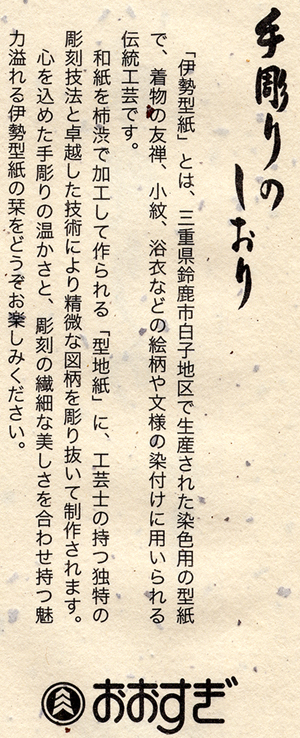 手彫りのしおり
「伊勢型紙」とは、三重県鈴鹿市白子地区で生産された染色用の型紙
で、着物の友禅、小紋、浴衣などの絵柄や文様の染付けに用いられる
伝統工芸です。
和紙を柿渋で加工して作られる「型地紙」に、工芸士の持つ独特の
彫刻技法と卓越した技術により精微な図柄を彫り抜いて制作されます。
心を込めた手彫りの温かさと、彫刻の繊細な美しさを合わせ持つ魅
力溢れる伊勢型紙の栞をどうぞお楽しみください。
おおすぎ